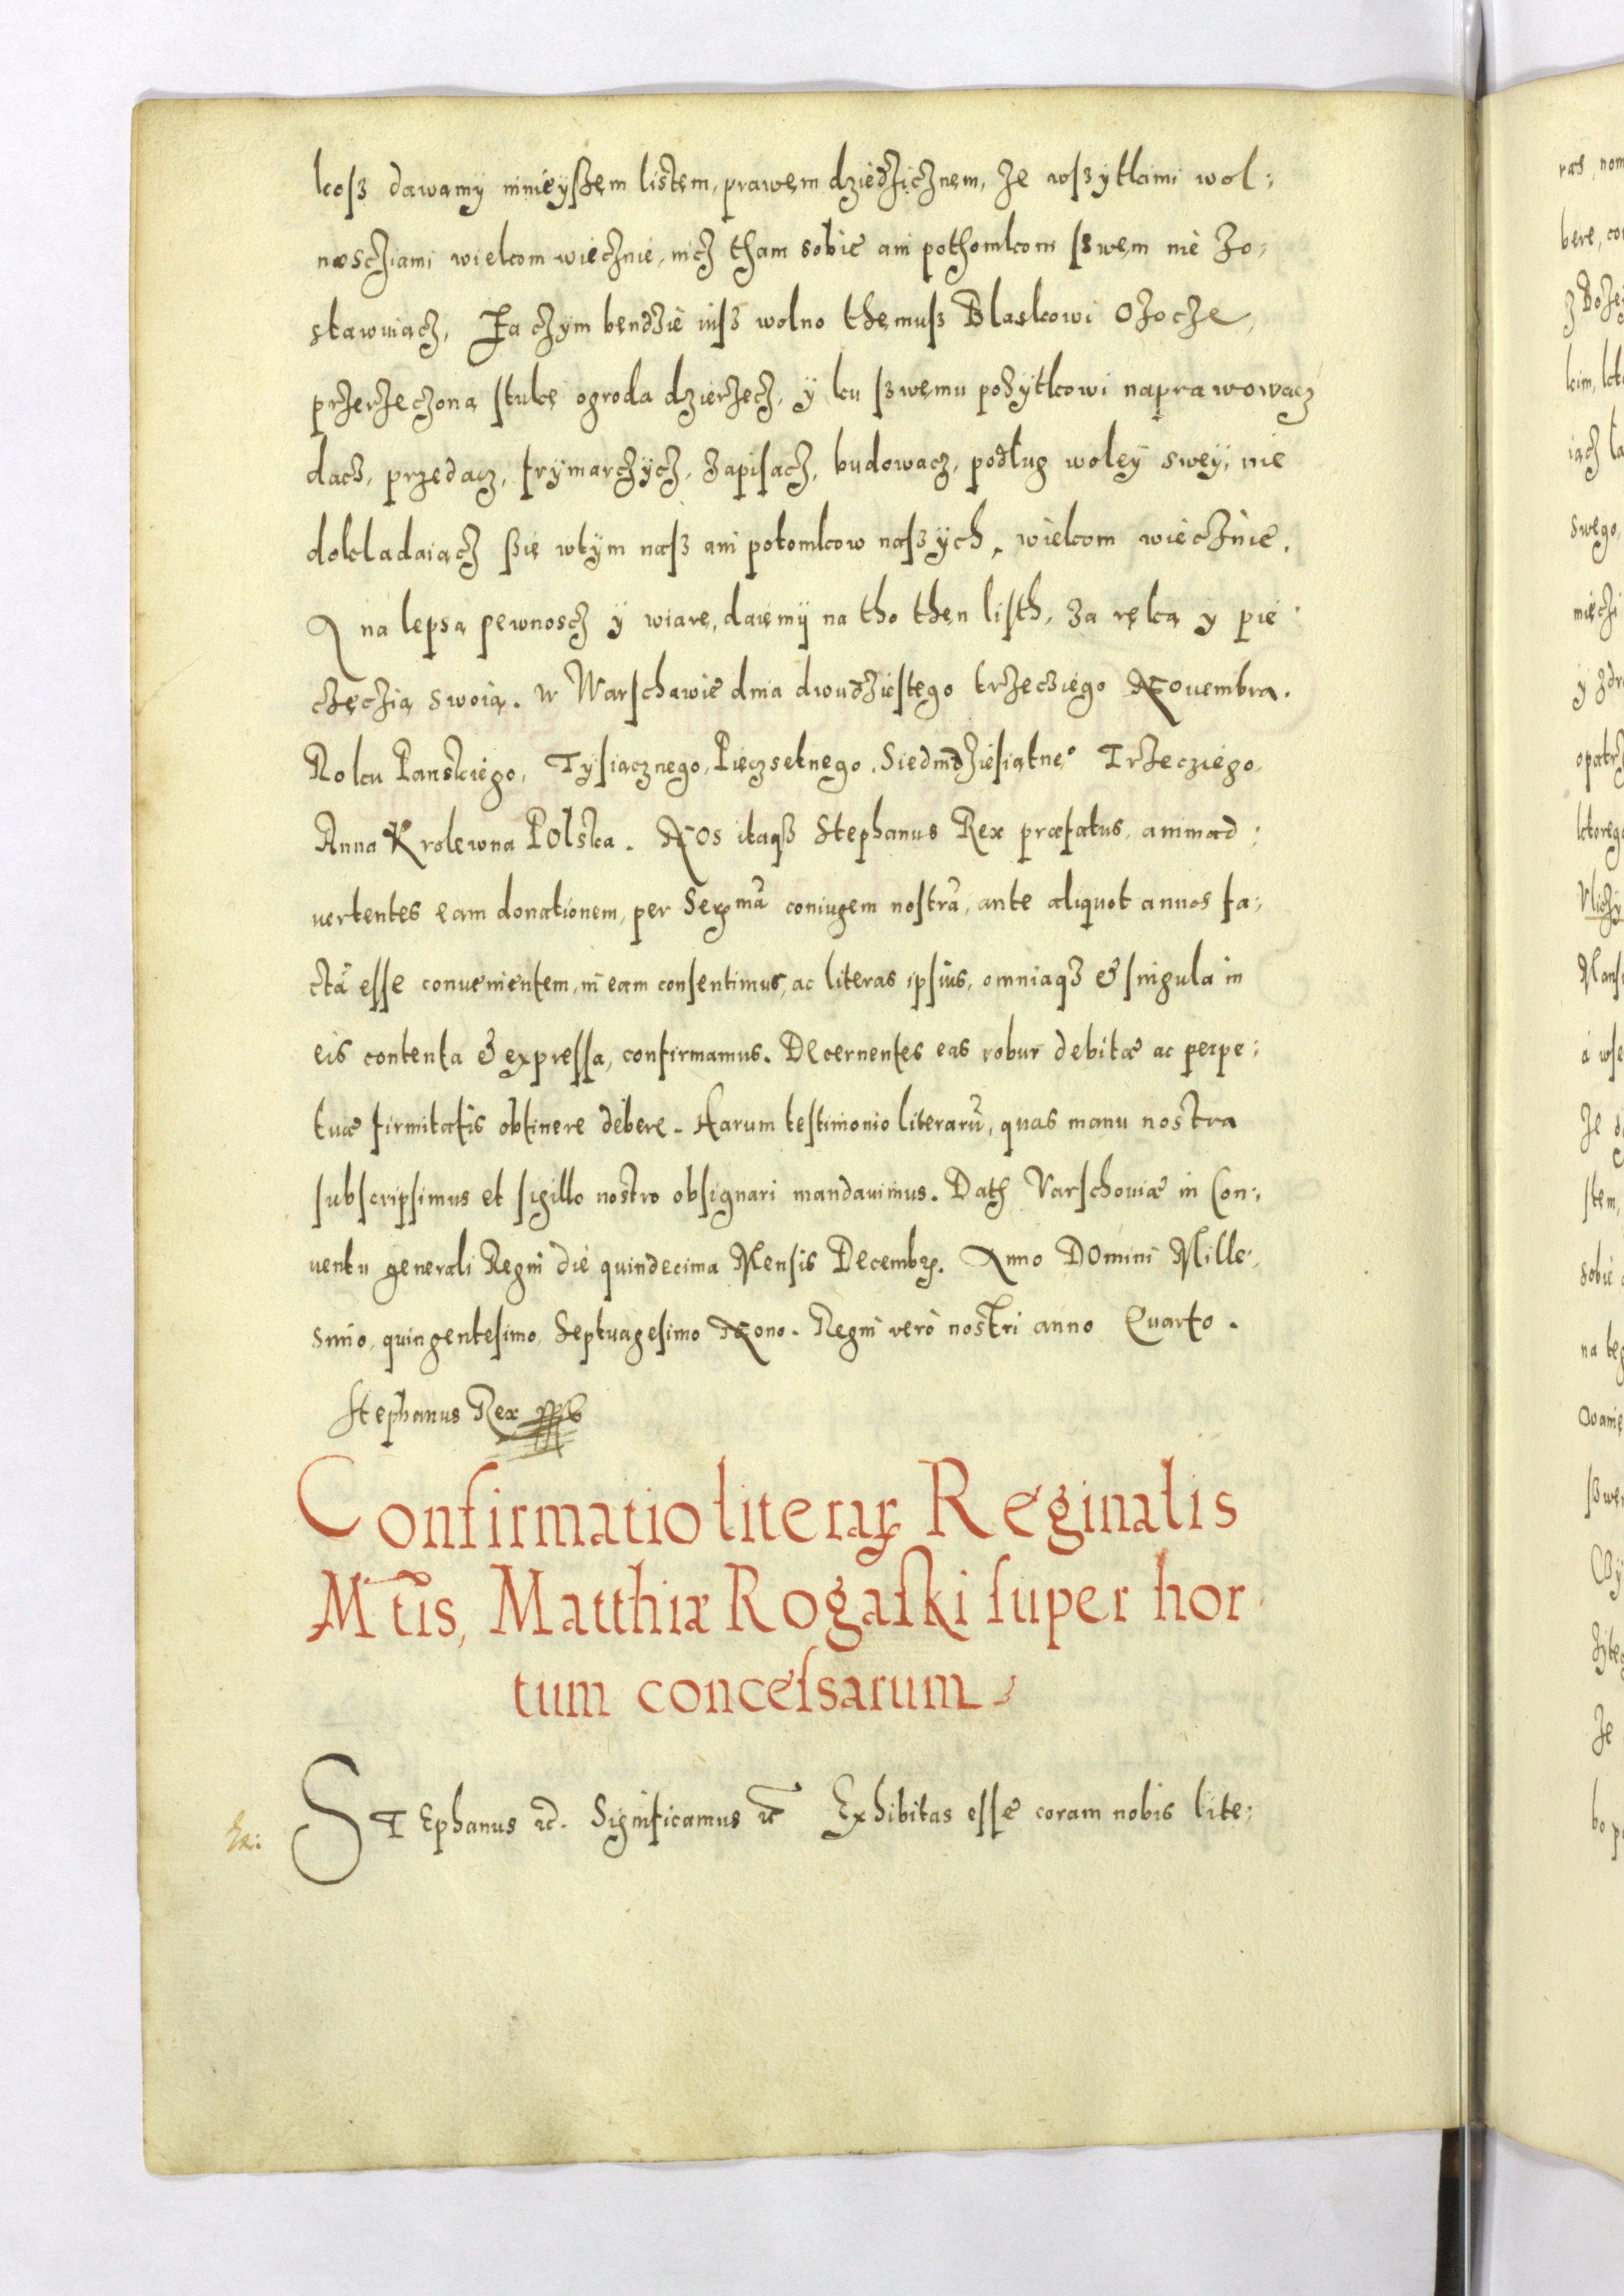 kosz dawamÿ ninieÿszem listem, prawem dziedzicznem, ze wszytkimi wol:
noscziami wiekom wiecznie, nicz tham sobie ani pothomkom szwem nie zo:
stawuiącz, Za czym bendzie iusz wolno themusz Blaskowi Ozocze,
przerzeczoną stukę ogroda dzierzecz, ÿ ku szwemu pozÿtkowi naprawowacz
dacz, przedacz, frÿmarczÿcz, zapisacz, budowacz, podług woleÿ sweÿ, nie
dokladaiącz się wtÿm nasz ani potomkow naszÿch, wiekom wiecznie.
A na lepsą pewnoscz ÿ wiare, daiemÿ na tho then listh, za ręką y pie
częczią swoią. W Warschawie dnia dwudziestego trzecziego Nouembra.
Roku Panskiego, Tysiącznego, Pięczsetnego, Siedmdziesiątne° Trzecziego,
Anna Krolewna POlska. NOs itaqȝ Stephanus Rex præfatus, animad:
uertentes eam donationem, per Serᵐᵃ̃ coniugem nostrã, ante aliquot annos fa:
ctã esse conuenientem, in eam consentimus, ac literas ipsius, omniaqȝ & singula in
eis contenta & expressa, confirmamus. DEcernentes eas robur debitæ ac perpe:
tuæ firmitatis obtinere debere. Harum testimonio literarũ, quas manu nostra
subscripsimus et sigillo nostro obsignari mandauimus. Datꝭ Varschouiæ in Con:
uentu generali Regni die quindecima Mensis Decembꝝ. Anno DOmini Mille:
simo, quingentesimo, Septuagesimo Nono. Regni verò nostri anno Quarto.
Stephanus Rex
Confirmatio literaꝝ Reginalis
M tis, Matthiæ Rogaski super hor
tum concessarum
STEphanus ec̃. Significamus ec̃ Exhibitas esse coram nobis lite: